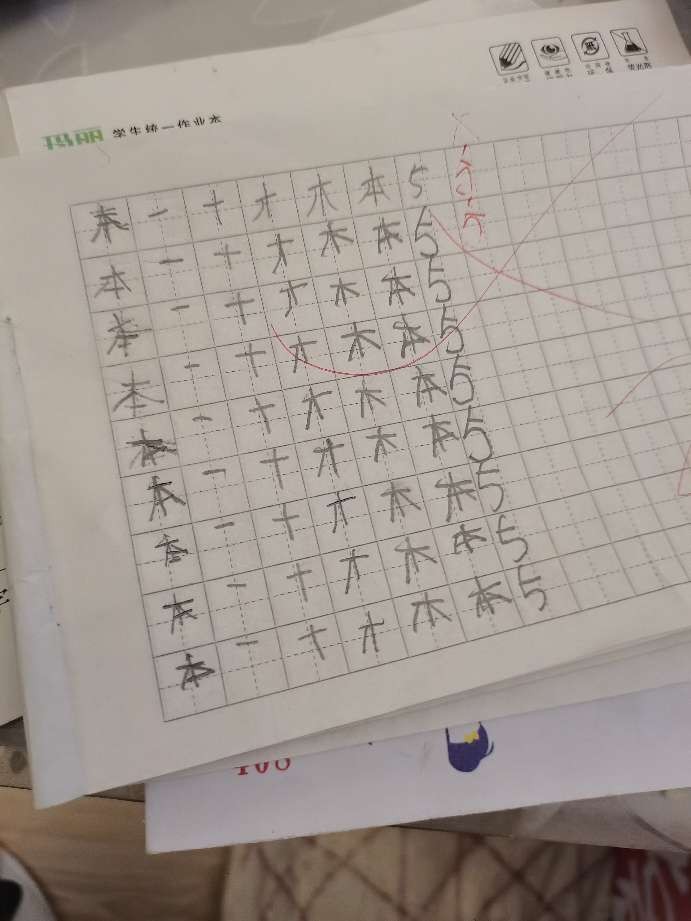 学生统一作业本
本 一 十 才 木 本 5
本 一 十 才 木 本 5
本 一 十 才 木 本 5
本 一 十 才 木 本 5
本 一 十 才 木 本 5
本 一 十 才 木 本 5
本 一 十 才 木 本 5
本 一 十 才 木 本 5
本 一 十 才 木 本 5
108